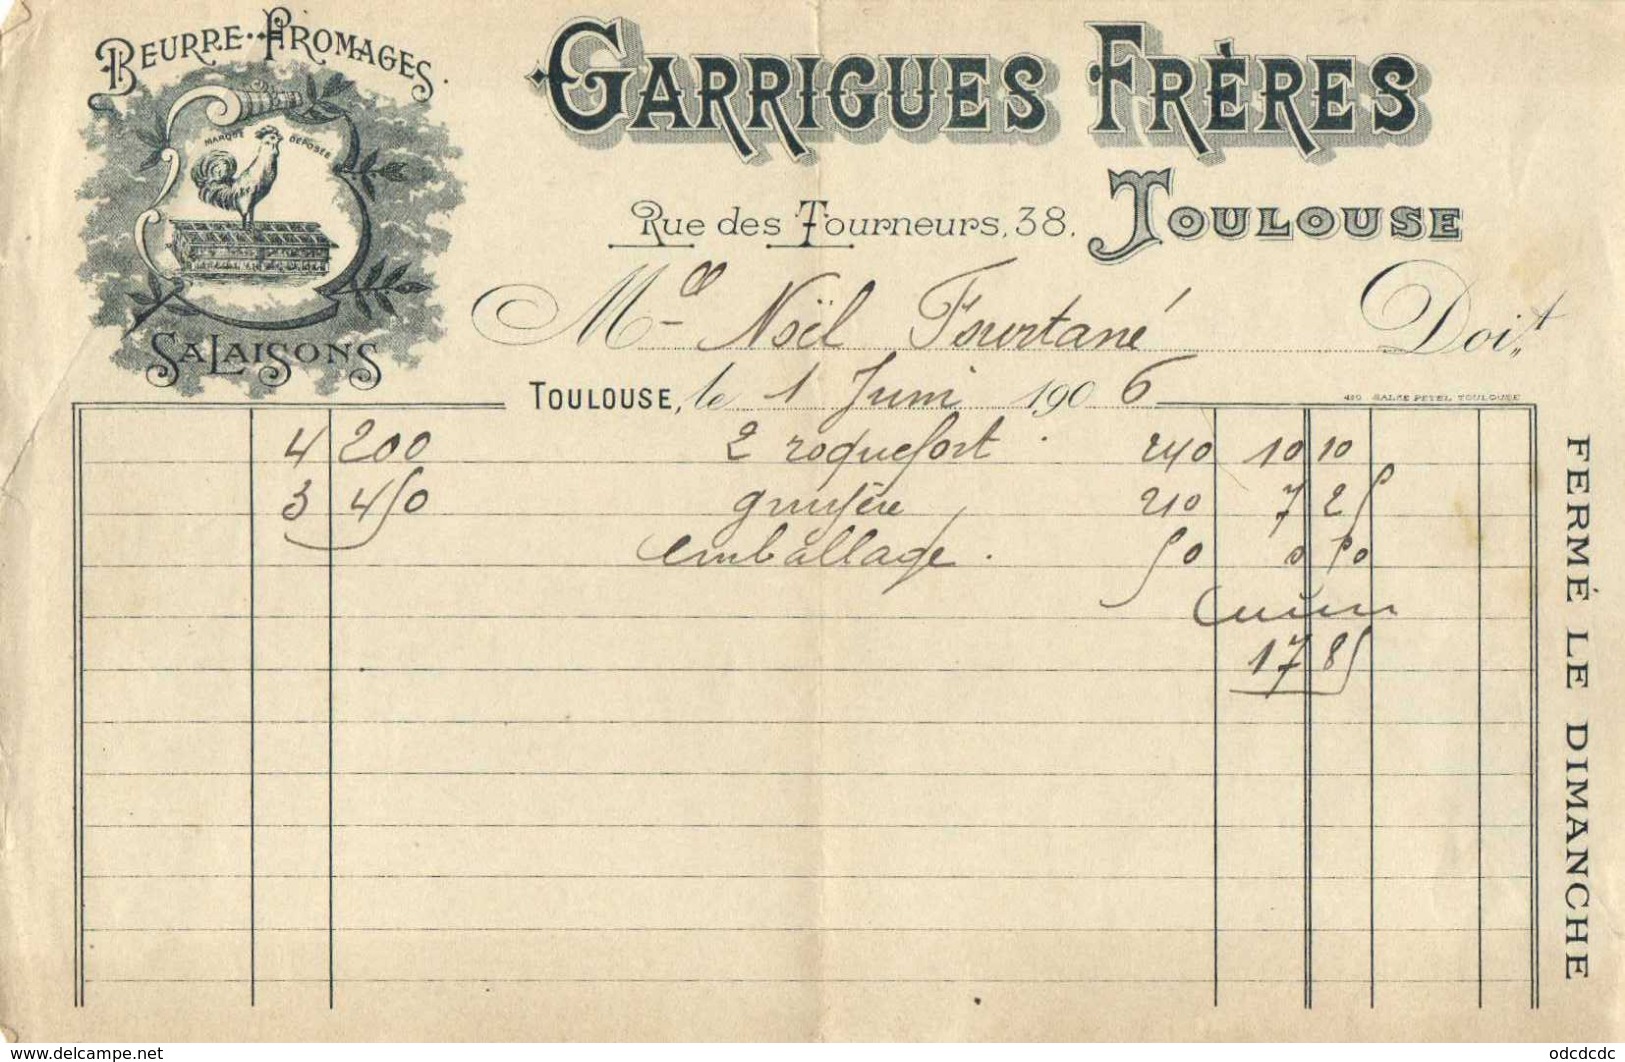 BEURRE·FROMAGES.
MARQUE DÉPOSÉE
SALAISONS
GARRIGUES FRÈRES
Rue des Tourneurs, 38, TOULOUSE
M Noël Fourtané Doit
TOULOUSE, le 1 Juin 1906
4 200 2 roquefort 240 10 10
3 450 gruyère 210 7 25
emballage . 50 0 50
17 85
FERMÉ LE DIMANCHE
www.delcampe.net
odcdcdc